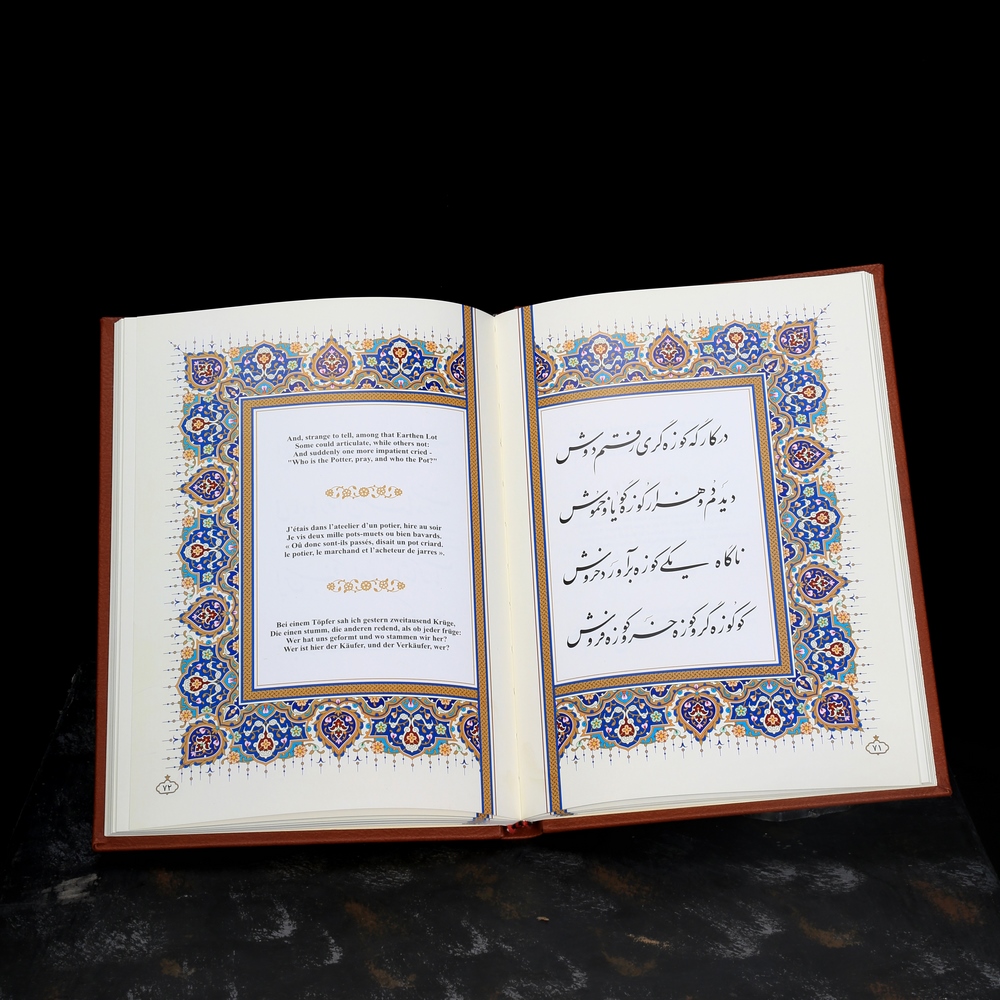 And, strange to tell, among that Earthen Lot
Some could articulate, while others not:
And suddenly one more impatient cried -
"Who is the Potter, pray, and who the Pot?"
J'étais dans l'ateelier d'un potier, hire au soir
Je vis deux mille pots-muets ou bien bavards.
« Oû donc sont-ils passés, disait un pot criard.
le potier, le marchand et l'acheteur de jarres ».
Bei einem Töpfer sah ich gestern zweitausend Krüge,
Die einen stumm, die anderen redend, als ob jeder früge:
Wer hat uns geformt und wo stammen wir her?
Wer ist hier der Käufer, und der Verkäufer, wer?
۷۲
در کارگه کوزه گری رفتم دوش
دیدم دو هزار کوزه گویا و خموش
ناگاه یکی کوزه برآورد خروش
کو کوزه گر و کوزه خر و کوزه فروش
۷۱